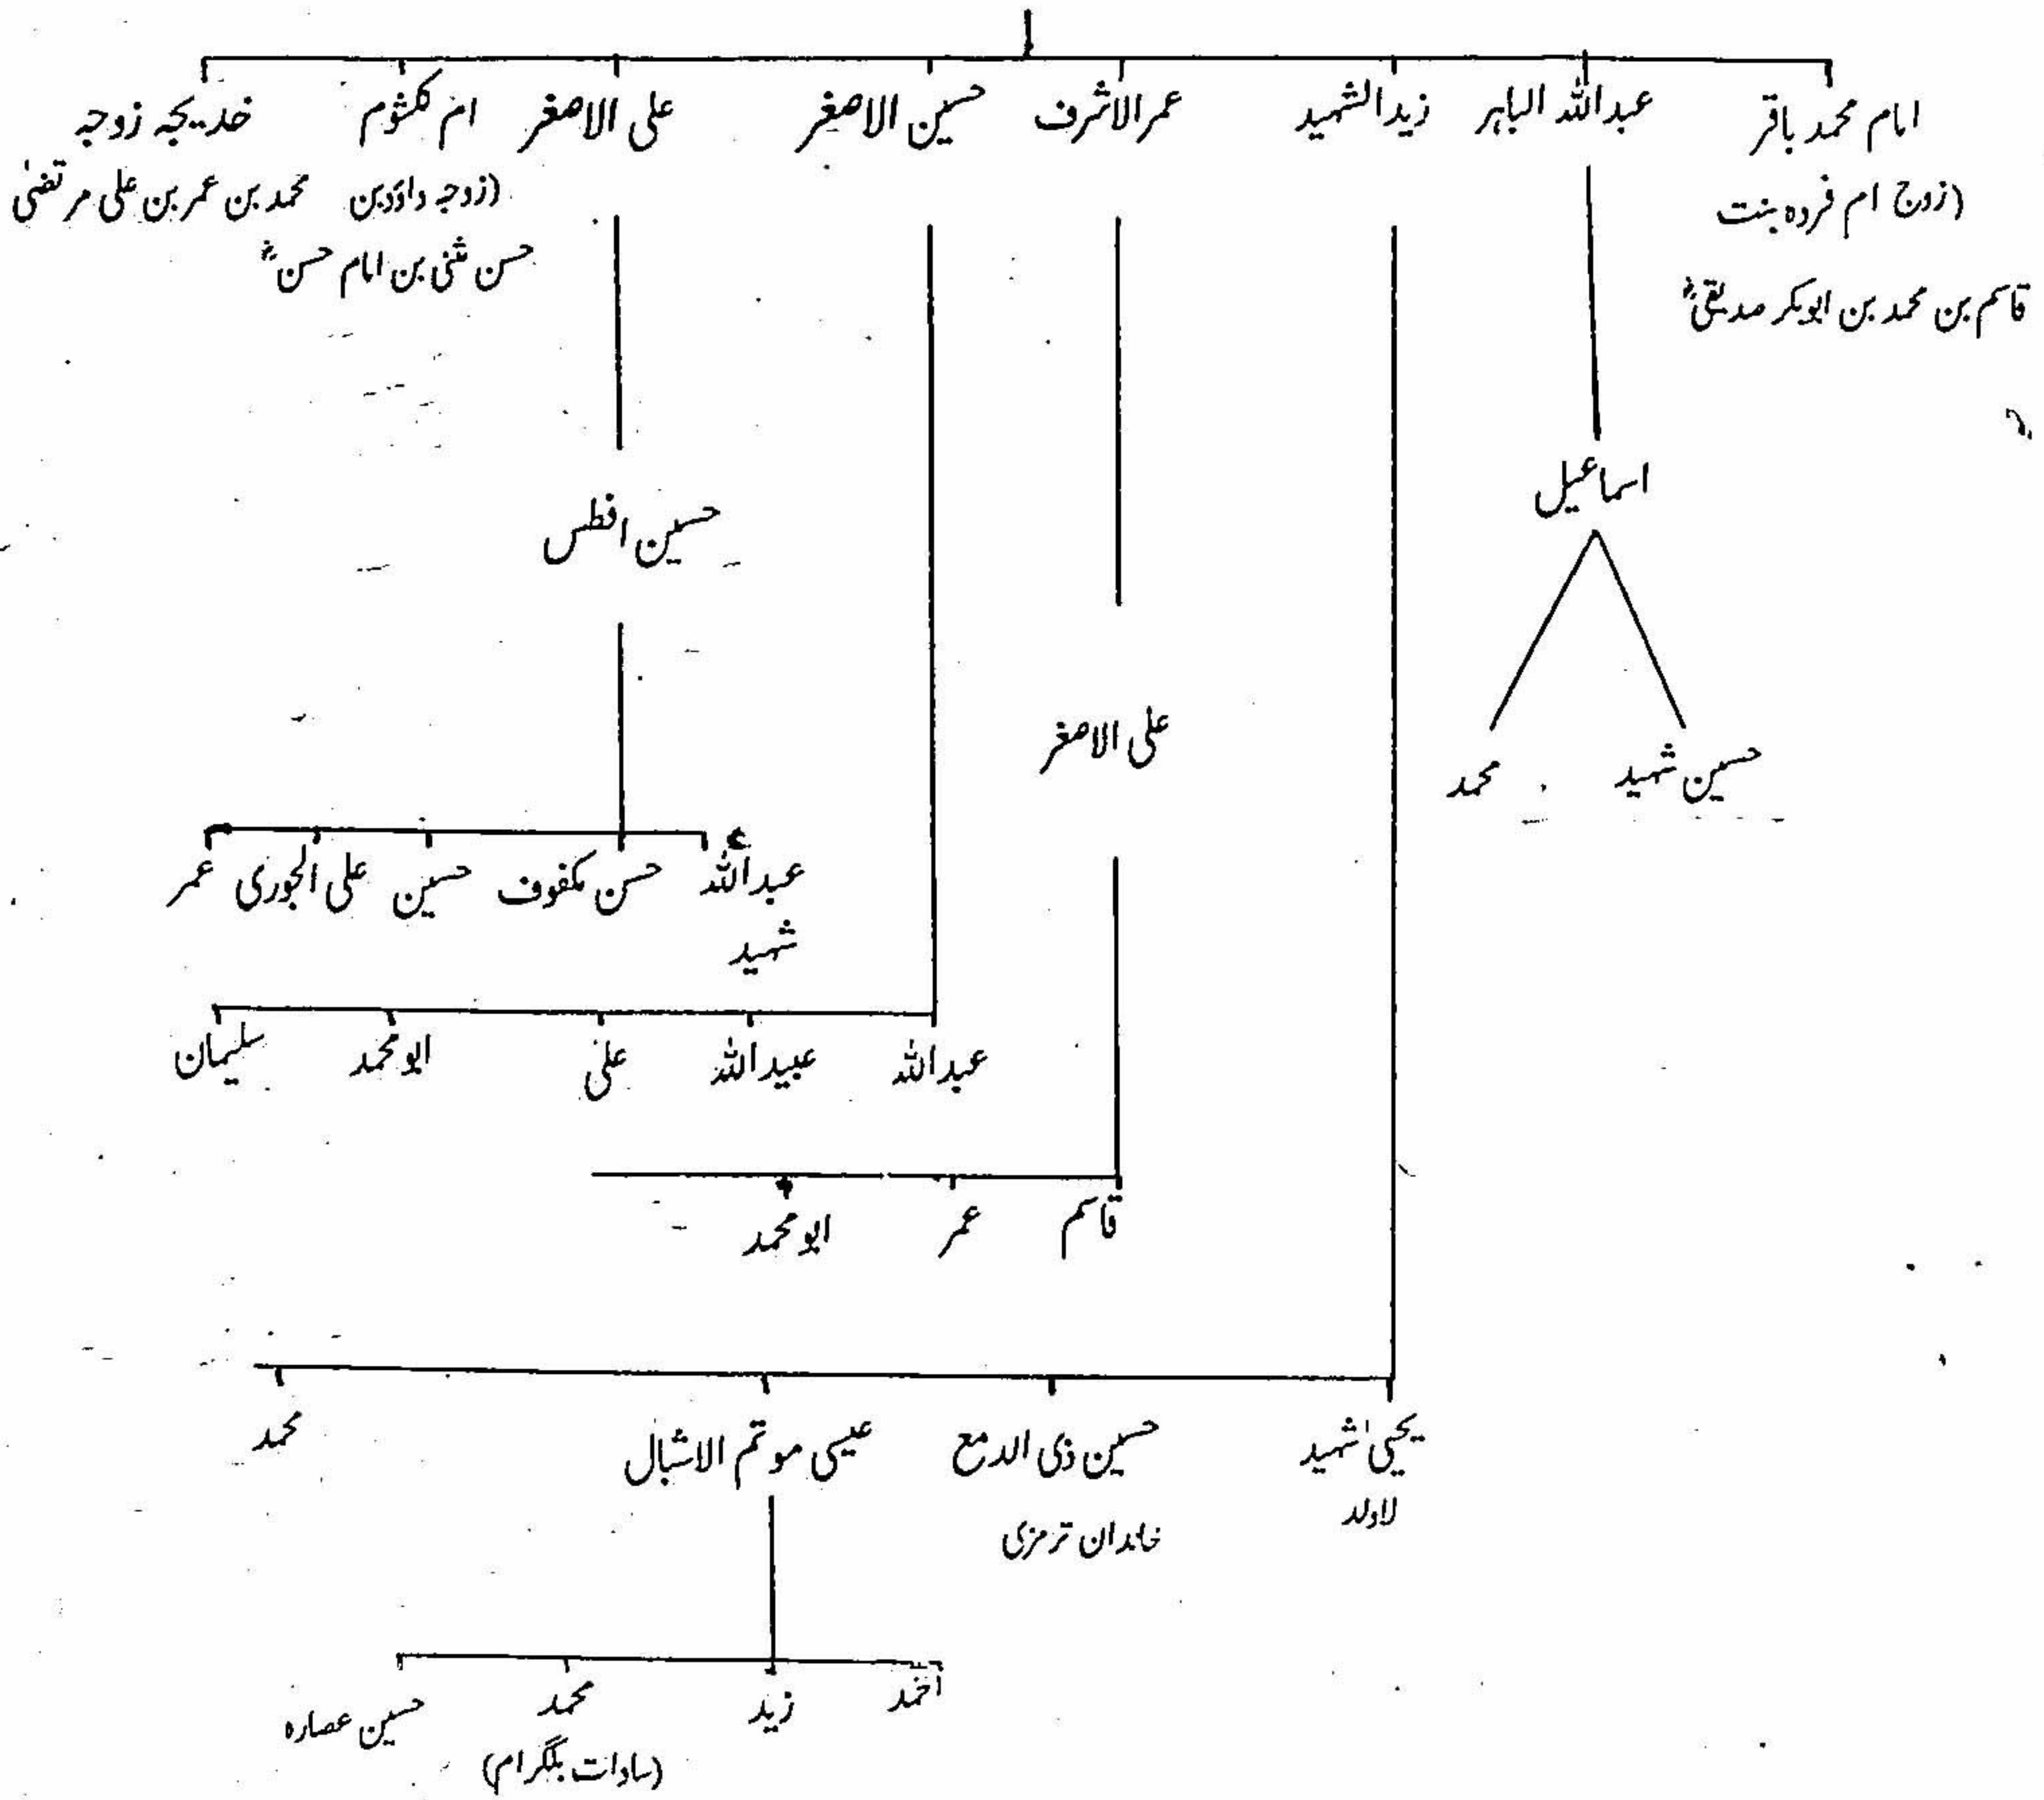 امام محمد باقر
(زوج ام فروہ بنت
قاسم بن محمد بن ابوبکر صدیقؓ)
عبداللہ الباہر
زید الشہید
عمر الاشرف
حسین الاصغر
علی الاصغر
ام کلثوم
(زوجہ داؤد بن
حسن مثنیٰ بن امام حسنؓ
خدیجہ زوجہ
محمد بن عمر بن علی مرتضیٰ
اسماعیل
حسین افطس
علی الاصغر
حسین شہید
محمد
عبداللہ
شہید
حسن مکفوف
حسین
علی الجوری
عمر
عبداللہ
عبیداللہ
علی
ابو محمد
سلیمان
قاسم
عمر
ابو محمد
یحییٰ شہید
لاولد
حسین ذی الدمع
خاندان ترمزی
عیسی موتم الاشبال
محمد
احمد
زید
محمد
(سادات بلگرام)
حسین عصارہ